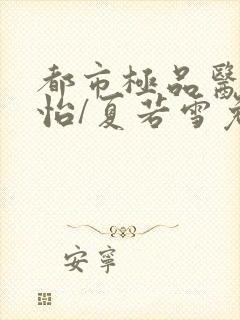 都市極品醫
怡/夏若雪
安寧